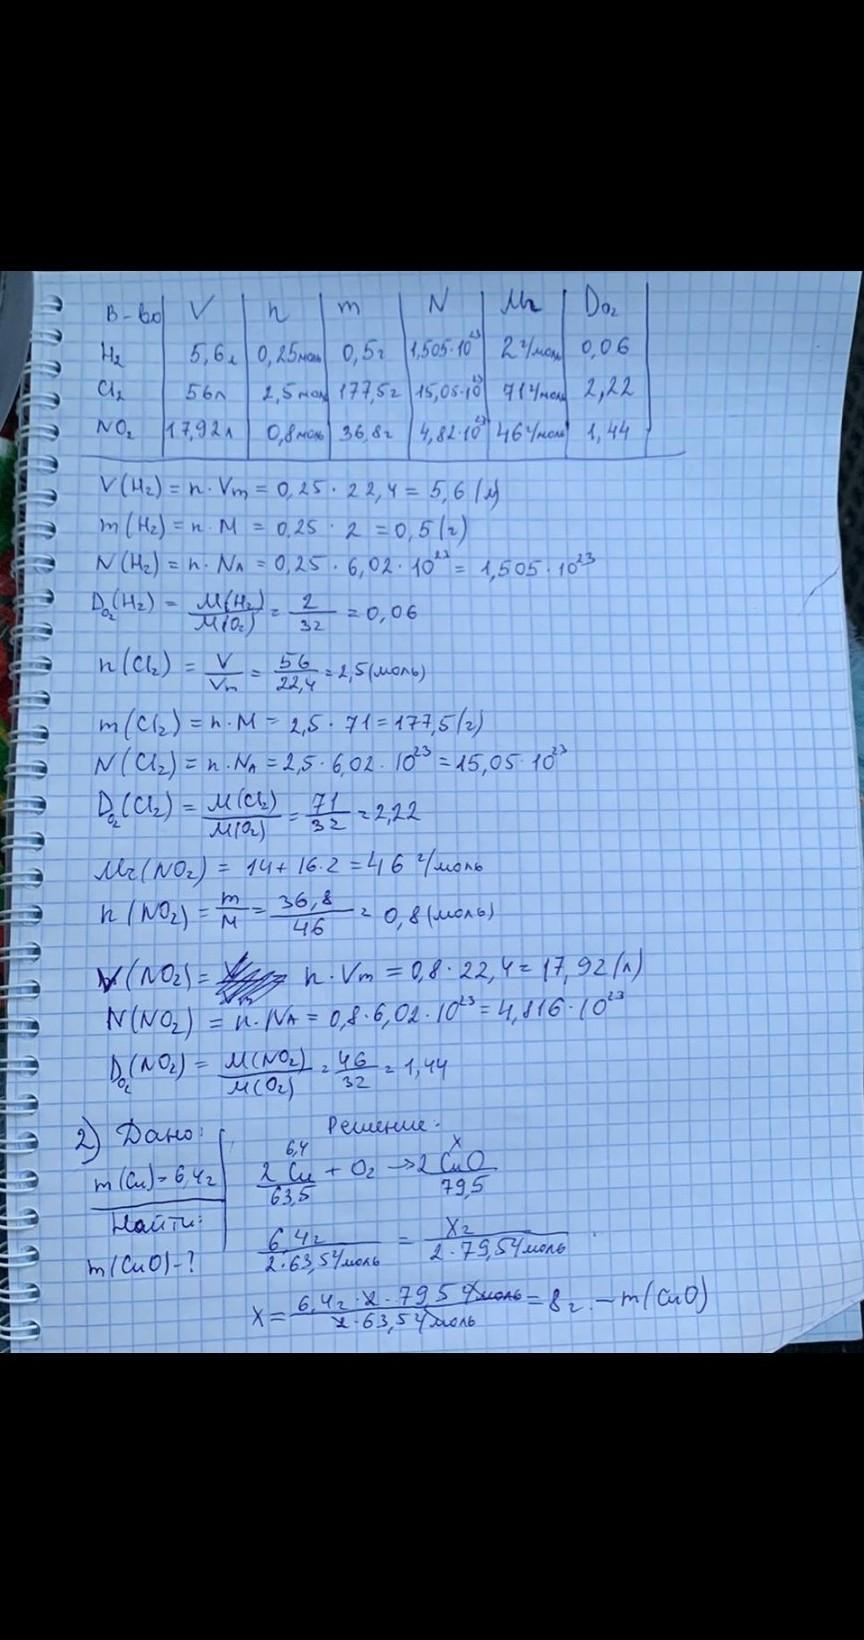 В-во V n m N Mr DO₂
H₂ 5,6л 0,25моль 0,5г 1,505·10²³ 2 г/моль 0,06
Cl₂ 56л 2,5моль 177,5г 15,05·10²³ 71 г/моль 2,22
NO₂ 17,92л 0,8моль 36,8г 4,82·10²³ 46 г/моль 1,44
V(H₂) = n·Vm = 0,25 · 22,4 = 5,6 (л)
m(H₂) = n·M = 0,25 · 2 = 0,5 (г)
N(H₂) = n·NA = 0,25 · 6,02 · 10²³ = 1,505 · 10²³
DO₂(H₂) = M(H₂)/M(O₂) = 2/32 = 0,06
n(Cl₂) = V/Vm = 56/22,4 = 2,5 (моль)
m(Cl₂) = n·M = 2,5 · 71 = 177,5 (г)
N(Cl₂) = n·NA = 2,5 · 6,02 · 10²³ = 15,05 · 10²³
DO₂(Cl₂) = M(Cl₂)/M(O₂) = 71/32 = 2,22
Mr(NO₂) = 14 + 16·2 = 46 г/моль
n(NO₂) = m/M = 36,8/46 = 0,8 (моль)
V(NO₂) = n·Vm = 0,8 · 22,4 = 17,92 (л)
N(NO₂) = n·NA = 0,8 · 6,02 · 10²³ = 4,816 · 10²³
DO₂(NO₂) = M(NO₂)/M(O₂) = 46/32 = 1,44
2) Дано:
m(Cu) = 6,4г
Найти:
m(CuO) - ?
Решение.
6,4 x
2Cu + O₂ → 2CuO
63,5 79,5
6,4г/2·63,5г/моль = Xг/2·79,5г/моль
X = 6,4г·2·79,5г/моль/2·63,5г/моль = 8г. – m(CuO)